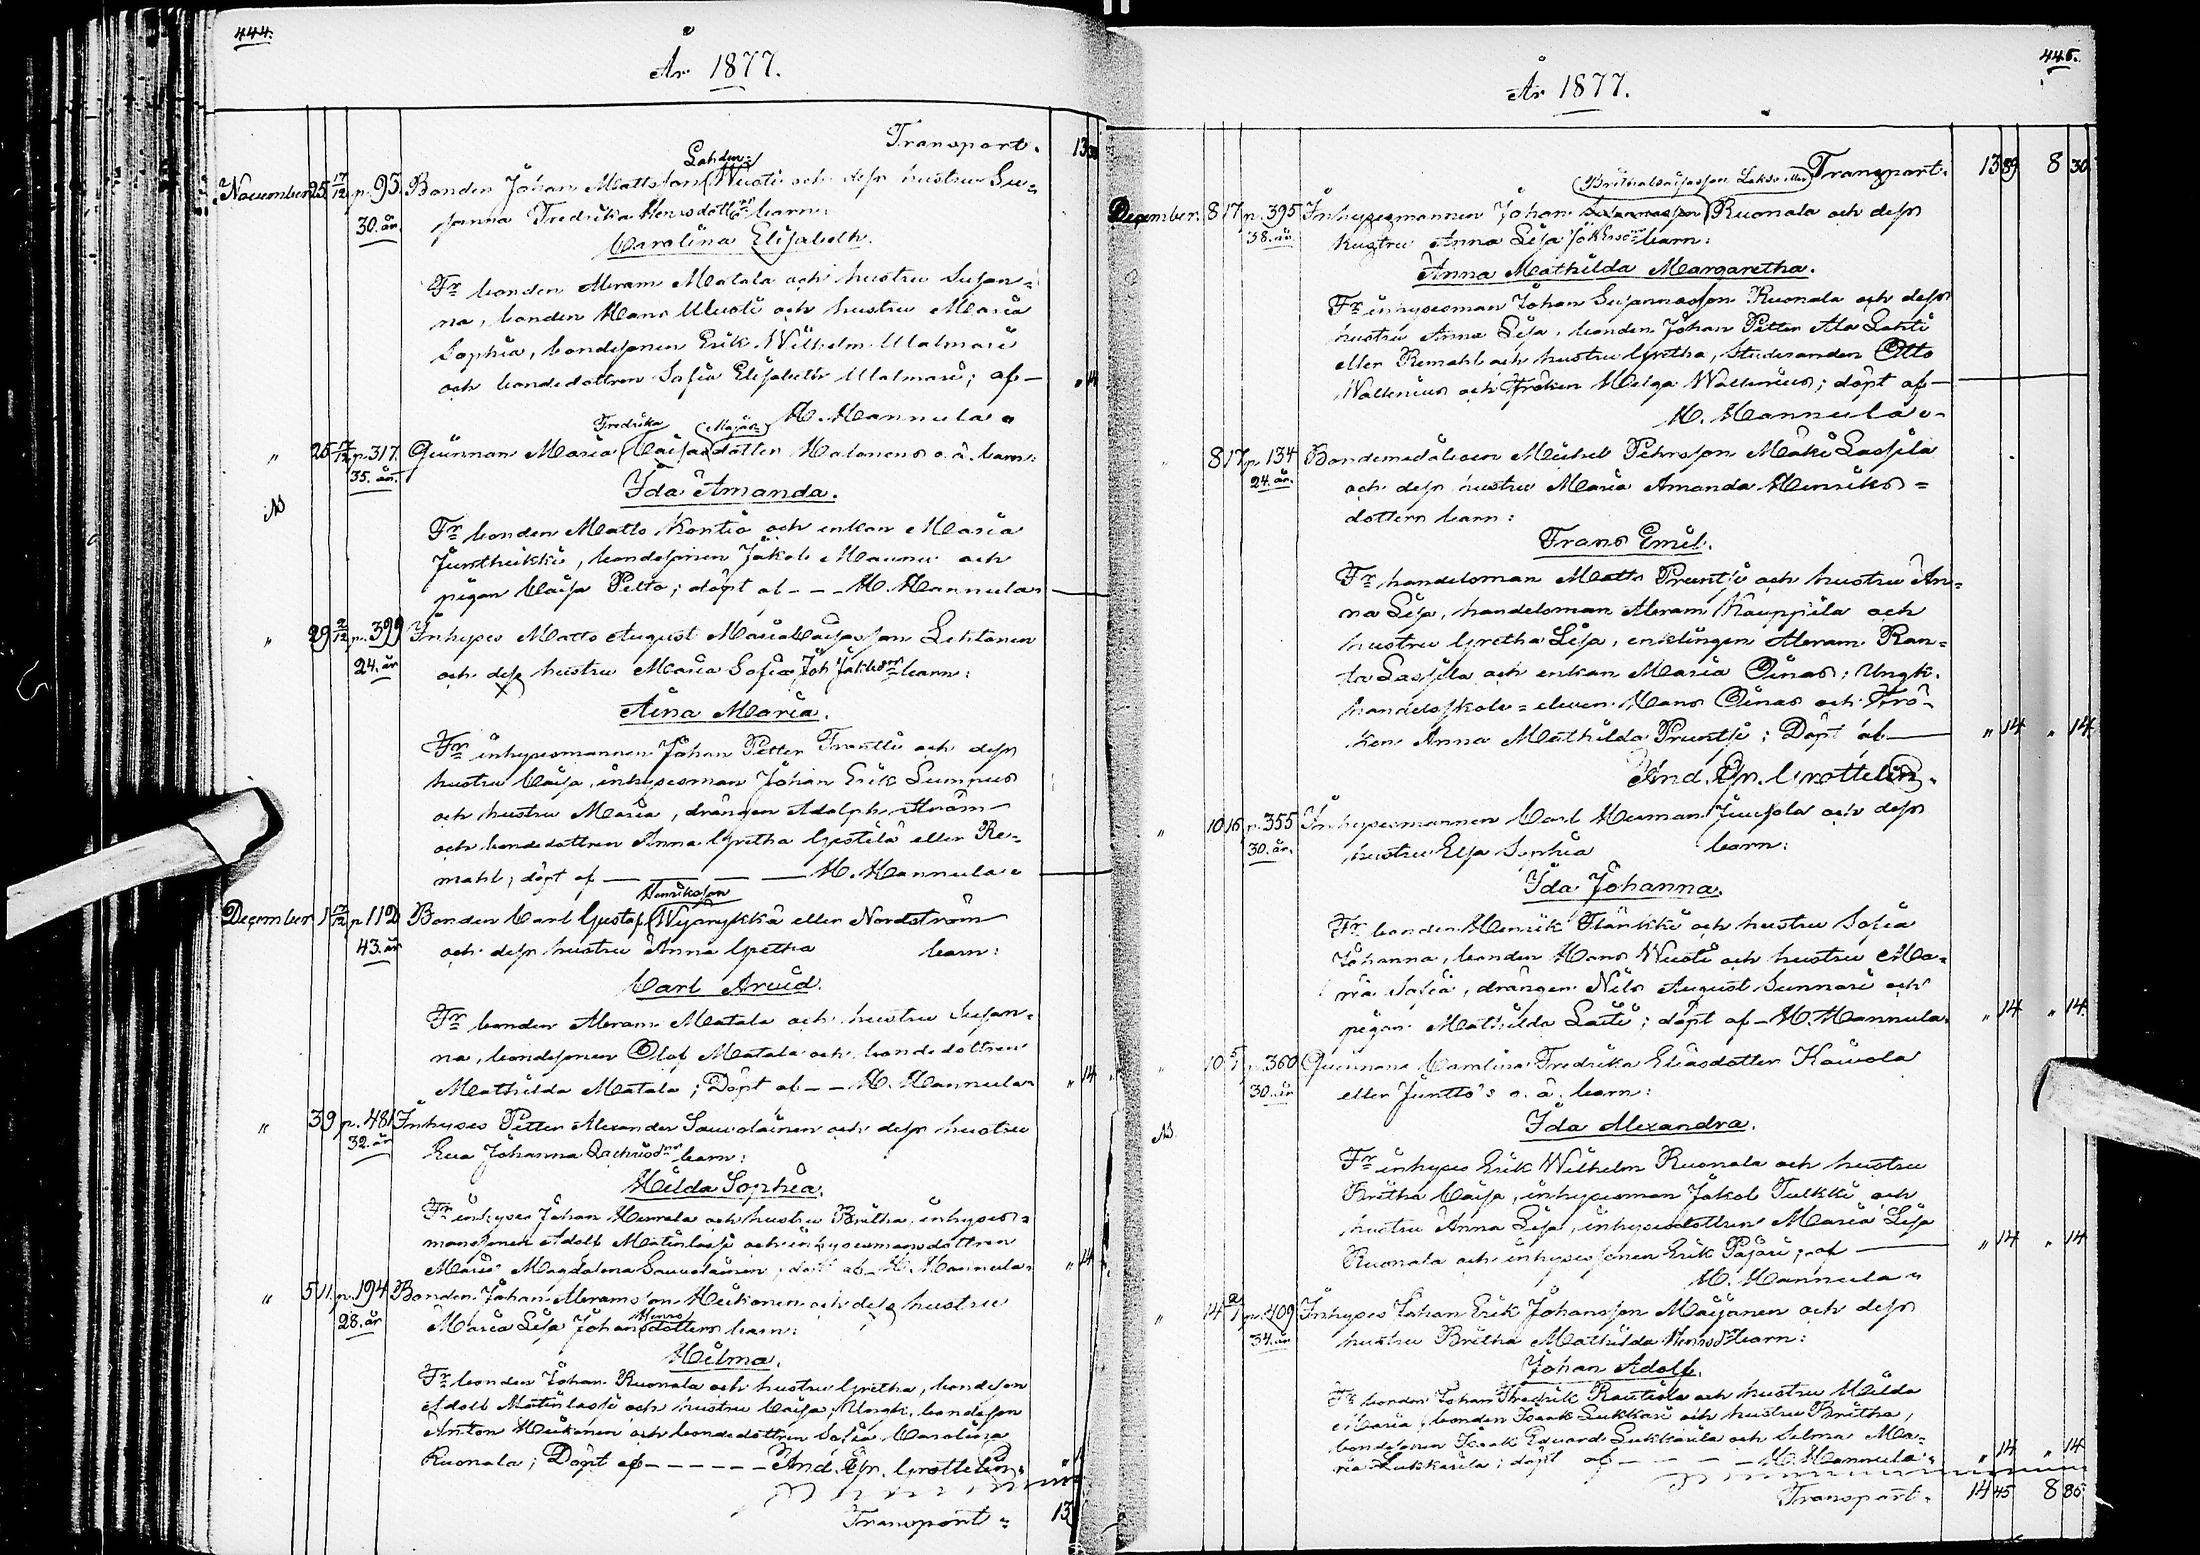 444.
År 1877.
Transport.
Lahden=
November 25 17/12 p. 93. Bonden Johan Mattsson Wuoti och dess hustru Su=
30. år. sanna Fredrika Henrsdottrs barn:
Carolina Elisabeth.
Fr bonden Abram Matala och hustru Susan=
na, bonden Hans Wuoti och hustru Maria
Sophia, bondesonen Erik Wilhelm Ulalmari
och bondedottren Sofia Elisabeth Ulalmari; af
H. Hannula "
Fredrika (Majas)
" 25 17/12 p. 317. Quinnan Maria Caisasdotter Halonens o. ä. barn:
35. år.
Ida Amanda.
N
Fr bonden Matts Kontio och enkan Maria
Junttikki, bondesonen Jakob Maunu och
pigan Caisa Pelto; döpt af - - - H. Hannula
" 29 2/12 p. 399 Inhyses Matts August MariaCaisasson Lehtonen
24. år och dess hustru Maria Sofia Joh Jakobsdr barn:
Aina Maria.
Fr inhysesmannen Johan Petter Frantti och dess
hustru Caisa, inhysesman Johan Erik Lumpus
och hustru Maria, drängen Adolph Aram
och bondedottren Anna Gretha Ypstilä eller Re=
mahl; döpt af — — — H. Hannula "
Henriksson
December 1 17/12 p. 112 Bonden Carl Gustaf Wiyrykkä eller Nordström
43. år och dess hustru Anna Gretha barn:
Carl Arvid.
Fr bonden Abram Matala och hustru Susan=
na, bondesonen Olof Matala och bondedottren
Mathilda Matala; Döpt af - - H. Hannula " 14
" 3 9 p. 481 Inhyses Petter Alexander Sauvolainen och dess hustru
32. år Eva Johanna Zachrisdr barn:
Hilda Sophia.
Fr inhyses Johan Hemola och hustru Britha, inhyses=
mansonen Adolf Matinlassi och inhysesmansdottren
Maria Magdalena Sauvolainen; döpt af H. Hannula " 14
" 5 11. p. 194 Bonden Johan Abramsson Heikonen och dess hustru
Henrs
28. år Maria Lisa Johansdotters barn:
Hilma.
Fr bonden Johan Ruonala och hustru Gretha, bondeson
Adolf Matinlassi och hustru Caisa, Ungk. bondeson
Anton Heikonen och bondedottren Sofia Carolina
Ruonala; Döpt af - - - - - And. Gr. Crottelin.
Transport = 13
445.
År 1877.
(Brithalisaisasson Lakso eller) Transport. 13 89 8 30
December. 8 17 p. 395 Inhysesmannen Johan Susannasson Ruonala och dess
38. år hustru Anna Lisa Jakobsdrs barn:
Anna Mathilda Margaretha.
Fr inhysesman Johan Susannasson Ruonala och dess
hustru Anna Lisa, bonden Johan Petter Ala Lahti
eller Remahl och hustru Gretha, Studeranden Otto
Wallenius och Fröken Helga Wallenius; döpt af
H. Hannula "
" 8 17 p. 134 Bondemedålegaren Michel Pehrsson Mäki Lassila
24. år. och dess hustru Maria Amanda Henriks=
dotters barn:
Frans Emil.
Fr handelsman Matts Pruntsi och hustru An=
na Lisa, handelsman Abram Kauppila och
hustru Gretha Lisa, enklingen Abram Ran=
ta Lassila och enkan Maria Oinas; Ungk.
handelsskole=eleven Hans Oinas och Frö=
ken Anna Mathilda Pruntsi; Döpt af — " 14 " 14
And. Gr. Crottelin.
" 10 16 p. 355 Inhysesmannen Carl Herman Juusola och dess
30. år. hustru Elsa Sophia barn:
Ida Johanna.
Fr bonden Henrik Plänkki och hustru Sofia
Johanna, bonden Hans Wuoti och hustru Ma=
ria Sofia, drängen Nils August Sunnari och
pigan Mathilda Laiti; döpt af - H. Hannula. " 14 " 14
" 10 5/1 p. 360 Quinnans Carolina Fredrika Eliasdotter Kaivola
30. år eller Juntto's o. ä. barn:
Ida Alexandra.
N.
Fr inhyses Erik Wilhelm Ruonala och hustru
Britha Caisa, inhysesman Jakob Tulkki och
hustru Anna Lisa, inhysesdottren Maria Lisa
Ruonala och inhysessonen Erik Pajari; af — " 14 " 14
H. Hannula "
" 14 2/1 p. 409 Inhyses Johan Erik Johansson Maijanen och dess
34. år hustru Britha Mathilda Henrsdr barn:
Johan Adolf.
Fr bonden Johan Fredrik Rautiola och hustru Hilda
Maria, bonden Isaak Lukkari och hustru Britha,
bondesonen Isaak Eduard Lukkarila och Selma Ma=
ria Lukkarila; döpt af — — — H. Hannula " " 14 " 14
Transport. 14 45 8 86